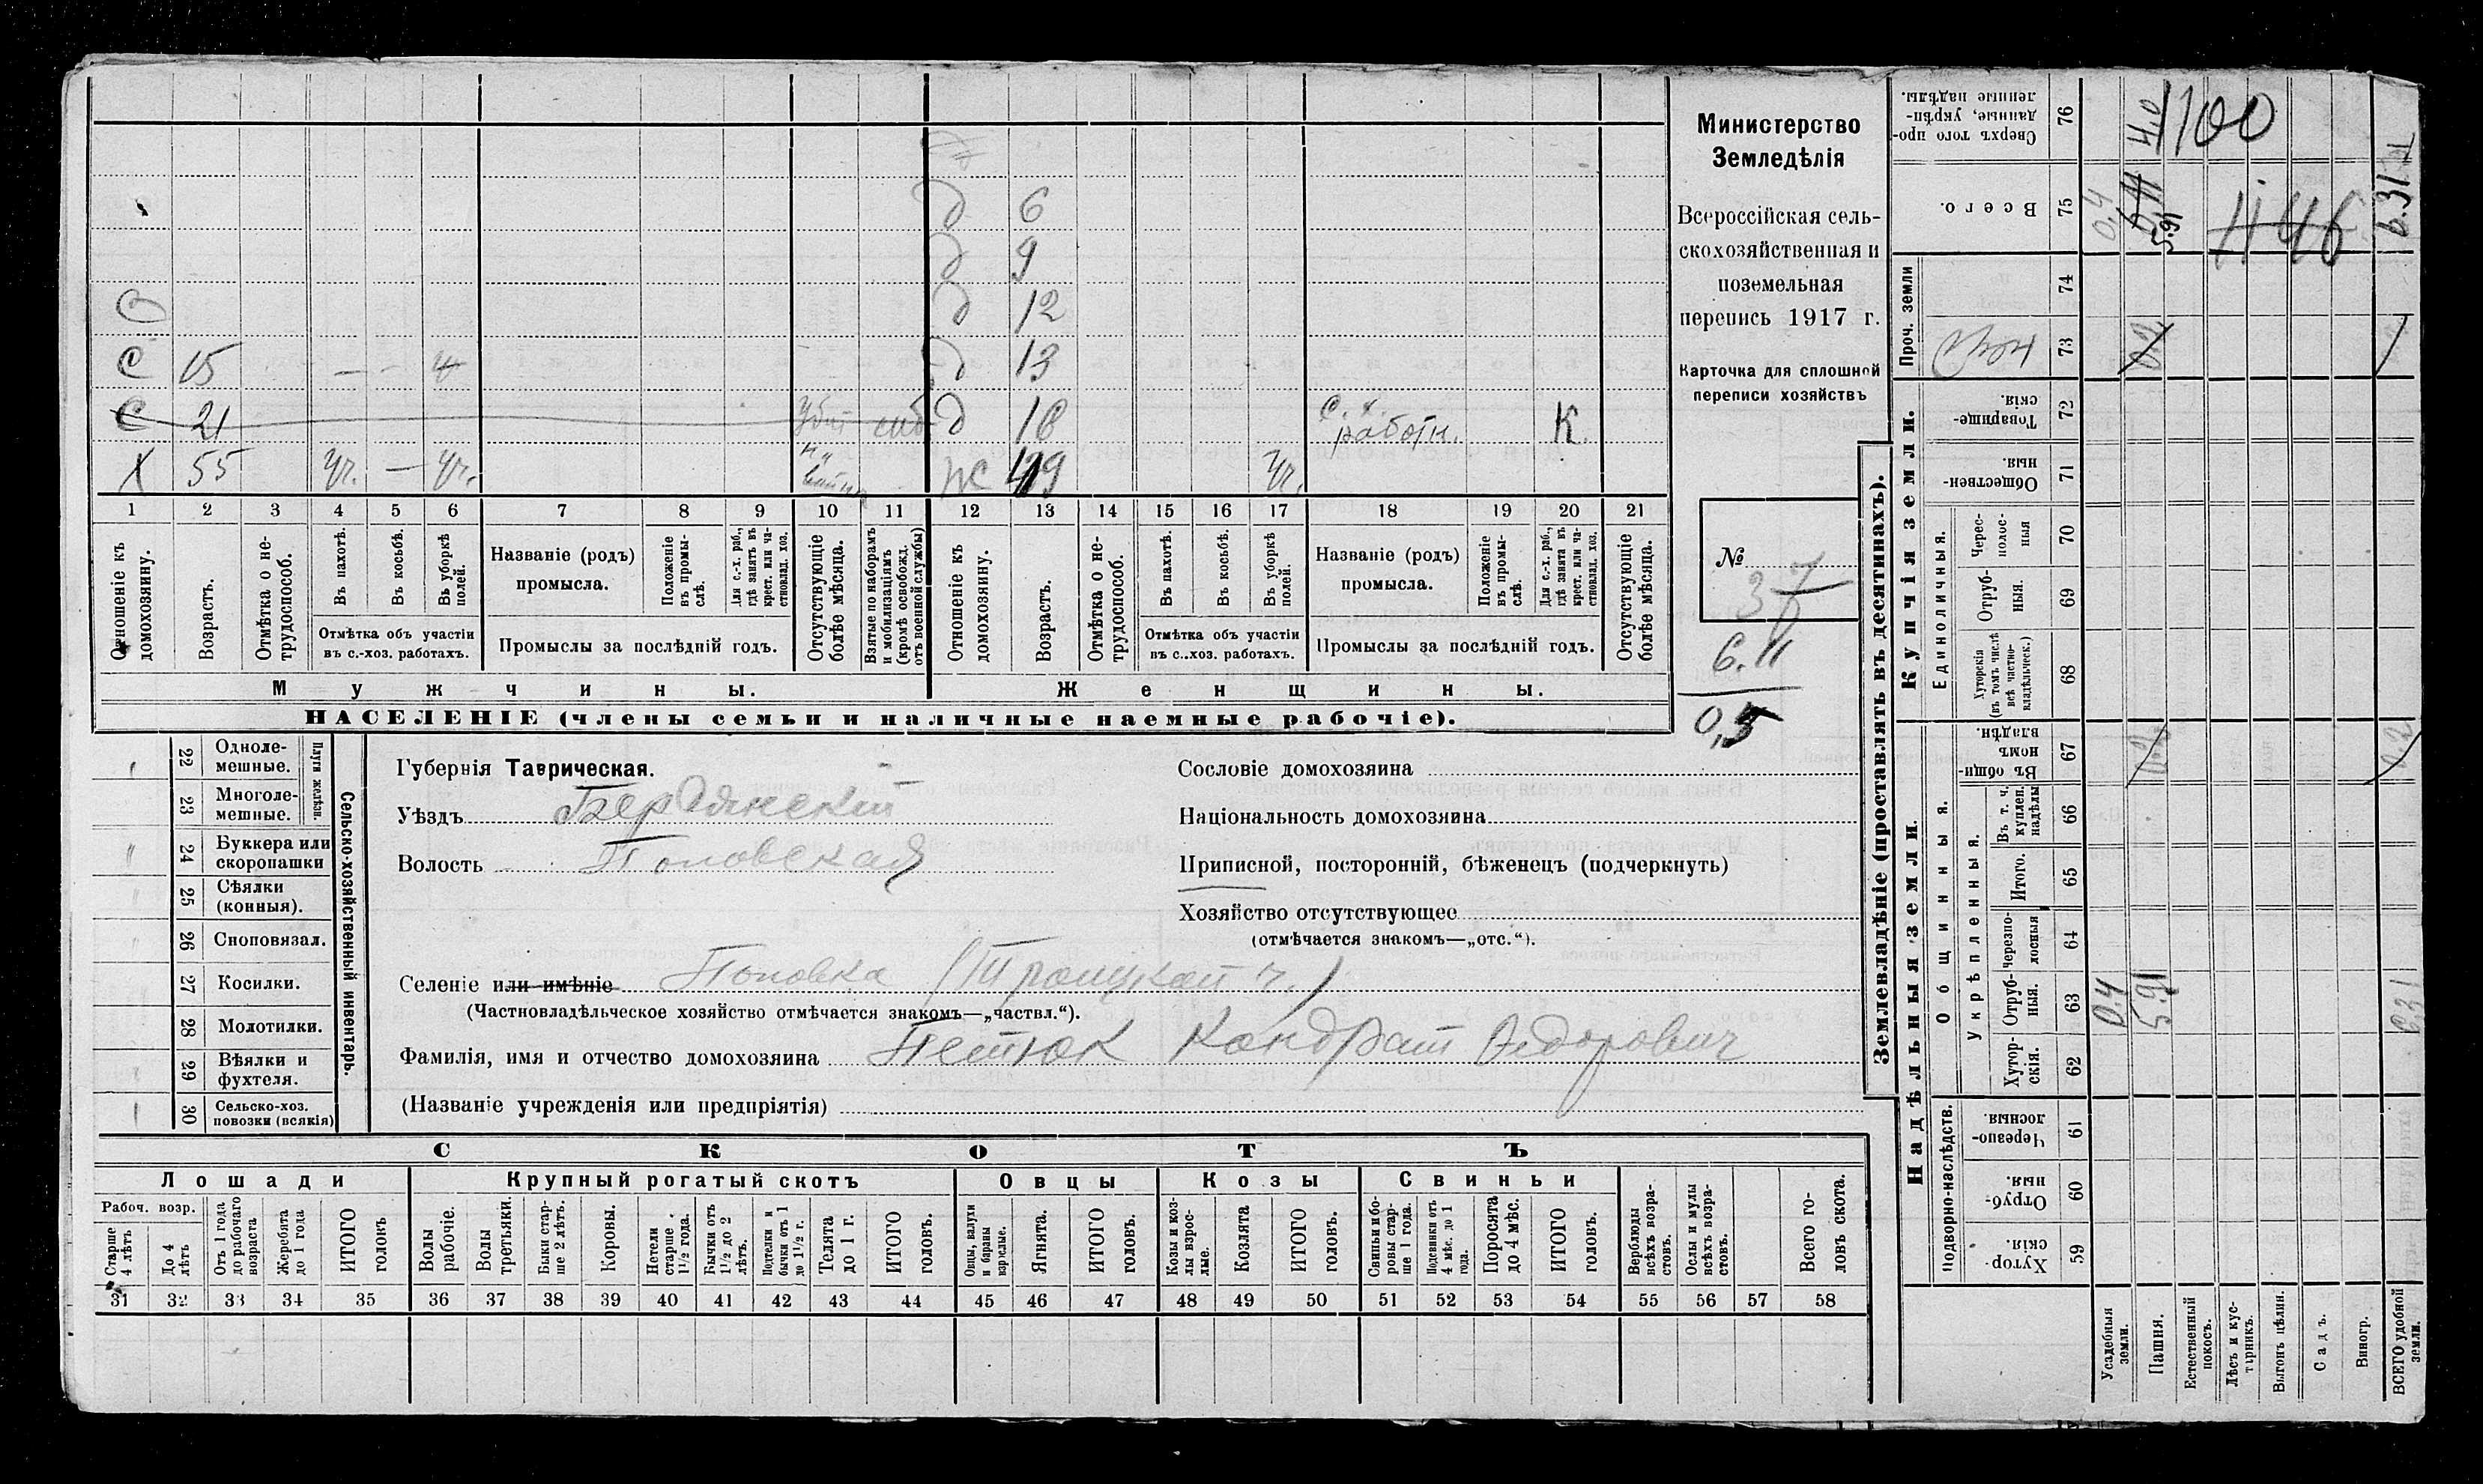 д 6
д 9
д 12
С 15 — - д 13
С 21 д с. х. работн. К
Х 55 уч. — уч. ж 49 уч.
1 2 3 4 5 6 7 8 9 10 11 12 13 14 15 16 17 18 19 20 21
Отношеніе къ домохозяину.
Возрастъ.
Отмѣтка о нетрудоспособ.
Въ пахотѣ.
Въ косьбѣ.
Въ уборкѣ полей.
Отмѣтка объ участіи
въ с.-хоз. работахъ.
Названіе (родъ)
промысла.
Положеніе въ промыслѣ.
Для с.-х. раб., гдѣ занятъ въ крест. или частновлад. хоз.
Промыслы за послѣдній годъ.
Отсутствующіе болѣе мѣсяца.
Взятые по наборамъ и мобилизаціямъ (кромѣ освобожд. отъ военной службы)
Отношеніе къ домохозяину.
Возрастъ.
Отмѣтка о нетрудоспособ.
Въ пахотѣ.
Въ косьбѣ.
Въ уборкѣ полей.
Отмѣтка объ участіи
въ с.-хоз. работахъ.
Названіе (родъ)
промысла.
Положеніе въ промыслѣ.
Для с.-х. раб., гдѣ занята въ крест. или частновлад. хоз.
Промыслы за послѣдній годъ.
Отсутствующіе болѣе мѣсяца.
Мужчины.
Женщины.
НАСЕЛЕНІЕ (члены семьи и наличные наемные рабочіе).
Министерство
Земледѣлія
Всероссійская сель-
скохозяйственная и
поземельная
перепись 1917 г.
Карточка для сплошной
переписи хозяйствъ
№
37
6.11
0,5
22 Одноле-
мешные.
23 Многоле-
мешные.
Плуги желѣзн.
24 Буккера или
скоропашки
25 Сѣялки
(конныя).
26 Сноповязал.
27 Косилки.
28 Молотилки.
29 Вѣялки и
фухтеля.
30 Сельско-хоз.
повозки (всякія)
Сельско-хозяйственный инвентарь.
Губернія Таврическая.
Уѣздъ Бердянский
Волость Поповская
Сословіе домохозяина
Національность домохозяина
Приписной, посторонній, бѣженецъ (подчеркнуть)
Хозяйство отсутствующее
(отмѣчается знакомъ—„отс.“).
Селеніе или имѣніе Поповка (Троицкой ч.)
(Частновладѣльческое хозяйство отмѣчается знакомъ—„частвл.“).
Фамилія, имя и отчество домохозяина Петюк Кондрат Федорович
(Названіе учрежденія или предпріятія)
СКОТЪ
Лошади
Крупный рогатый скотъ
Овцы
Козы
Свиньи
Рабоч. возр.
Старше 4 лѣтъ
До 4 лѣтъ
Отъ 1 года до рабочаго возраста
Жеребята до 1 года
ИТОГО головъ
Волы рабочіе.
Волы третьяки.
Быки старше 2 лѣтъ.
Коровы.
Нетели старше 1½ года.
Бычки отъ 1½ до 2 лѣтъ.
Подтелки и бычки отъ 1 до 1½ г.
Телята до 1 г.
ИТОГО головъ.
Овцы, валухи и бараны взрослые.
Ягнята.
ИТОГО головъ.
Козы и козлы взрослые.
Козлята
ИТОГО головъ.
Свиньи и боровы старше 1 года.
Подсвинки отъ 4 мѣс. до 1 года.
Поросята до 4 мѣс.
ИТОГО головъ.
Верблюды всѣхъ возрастовъ.
Ослы и мулы всѣхъ возрастовъ.
Всего головъ скота.
31 32 33 34 35 36 37 38 39 40 41 42 43 44 45 46 47 48 49 50 51 52 53 54 55 56 57 58
Землевладѣніе (проставлять въ десятинахъ).
Надѣльныя земли.
Купчія земли.
Проч. земли
Подворно-наслѣдств.
Общинныя.
Укрѣпленныя.
Единоличныя.
Сверхъ того проданные, укрѣпленные надѣлы. 76 4.0 1100
Всего. 75 0.4 6.11 5.91 1146 6.31
74
73
Товарищескія. 72
Общественныя. 71
Чересполосныя 70
Отрубныя. 69
Хуторскія (въ томъ числѣ всѣ частновладѣльческ.) 68
Въ общинномъ владѣн. 67 0.2 0.2
Въ т. ч. куплен. надѣлы 66
Итого. 65
Черезполосныя 64
Отрубныя. 63 0.4 5.91 6.31
Хуторскія. 62
Черезполосныя 61
Отрубныя. 60
Хуторскія. 59
Усадебныя земли.
Пашня.
Естественный покосъ.
Лѣсъ и кустарникъ.
Выгонъ цѣлин.
Садъ.
Виногр.
ВСЕГО удобной земли.